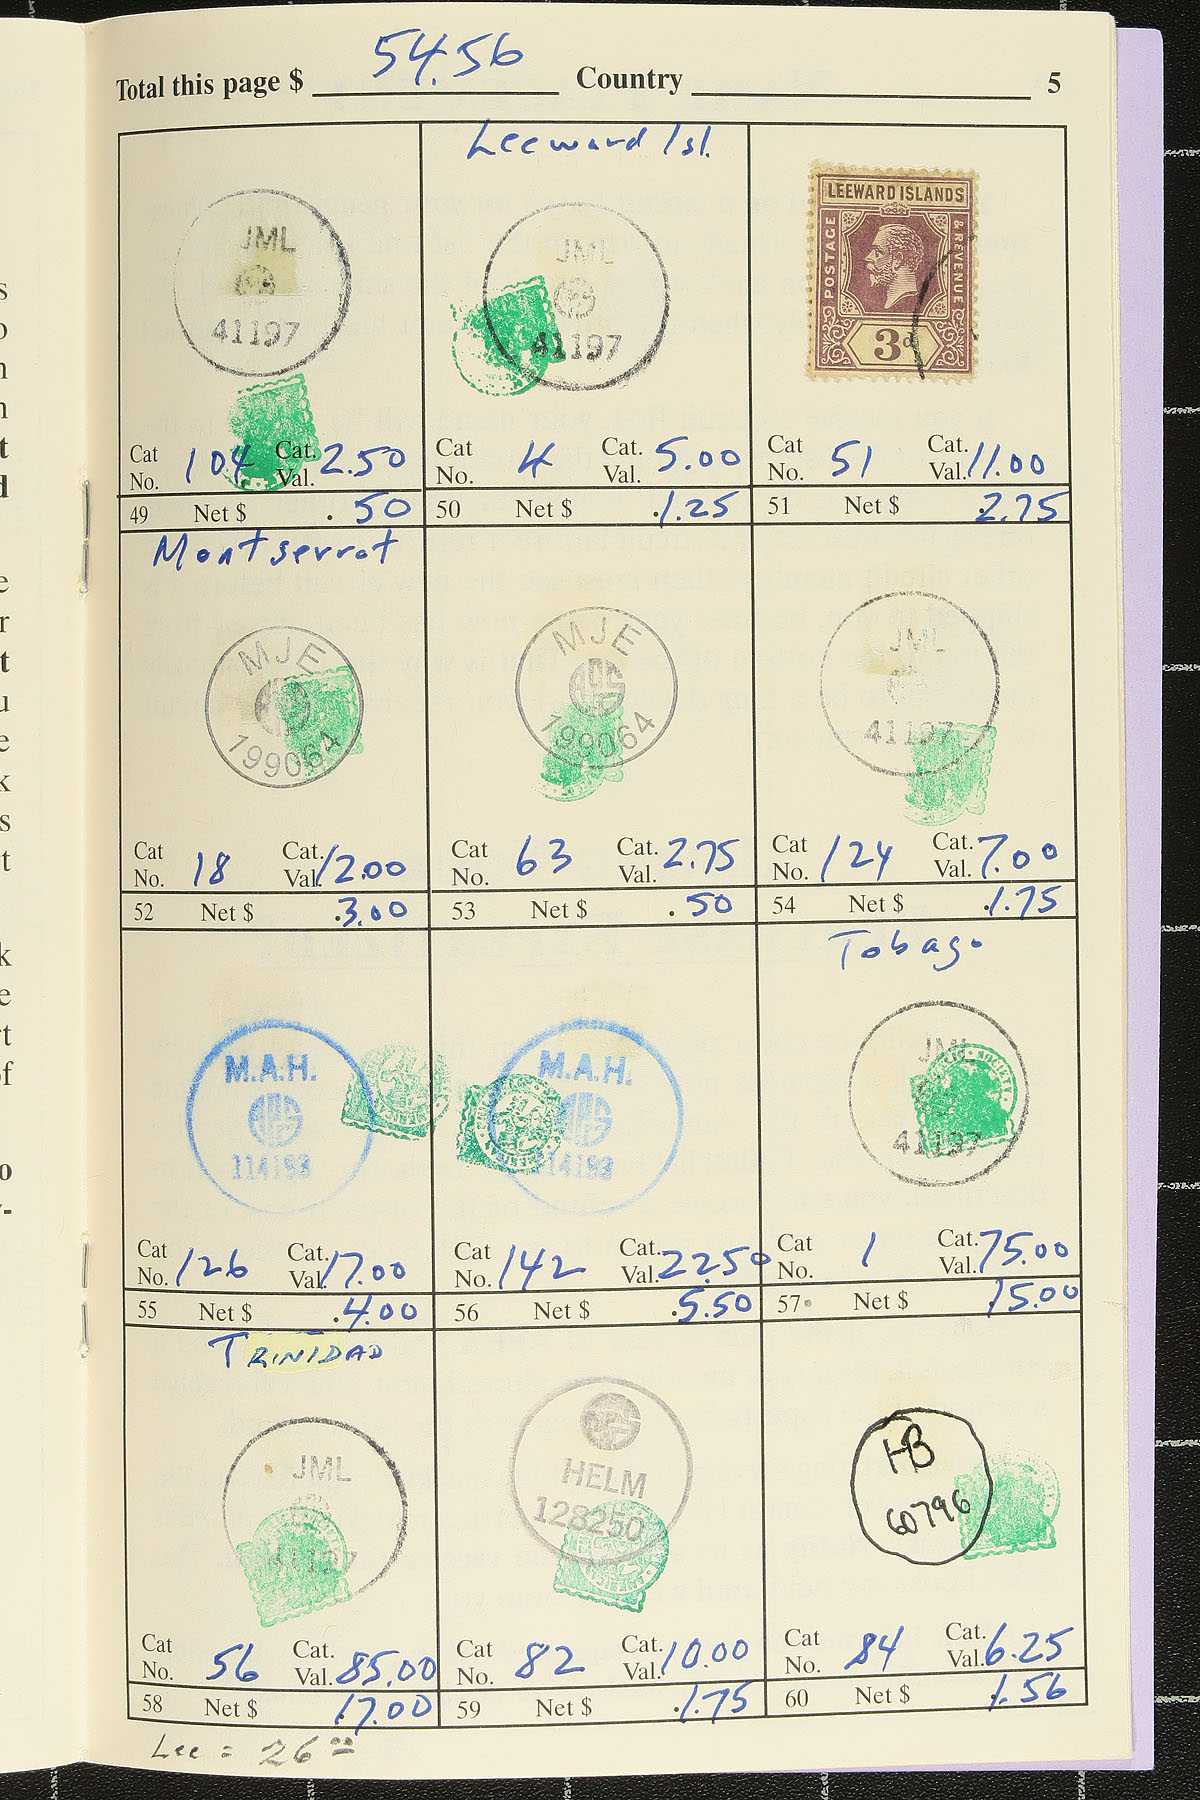 Total this page $ 54.56 Country 5
Leeward Isl.
JML
41197
JML
41197
LEEWARD ISLANDS
POSTAGE & REVENUE
3d
Cat No. 104 Cat. Val. 2.50
Cat No. 4 Cat. Val. 5.00
Cat No. 51 Cat. Val. 11.00
49 Net $ .50
50 Net $ 1.25
51 Net $ 2.75
Montserrat
MJE
APS
199064
MJE
APS
199064
JML
41197
Cat No. 18 Cat. Val. 12.00
Cat No. 63 Cat. Val. 2.75
Cat No. 124 Cat. Val. 7.00
52 Net $ 3.00
53 Net $ .50
54 Net $ 1.75
Tobago
M.A.H.
APS
114193
M.A.H.
APS
114193
JML
41197
Cat No. 126 Cat. Val. 17.00
Cat No. 142 Cat. Val. 22.50
Cat No. 1 Cat. Val. 75.00
55 Net $ 4.00
56 Net $ 5.50
57 Net $ 15.00
TRINIDAD
JML
41197
APS
HELM
128250
HB
60796
Cat No. 56 Cat. Val. 85.00
Cat No. 82 Cat. Val. 10.00
Cat No. 84 Cat. Val. 6.25
58 Net $ 17.00
59 Net $ 1.75
60 Net $ 1.56
Lee = 26.00